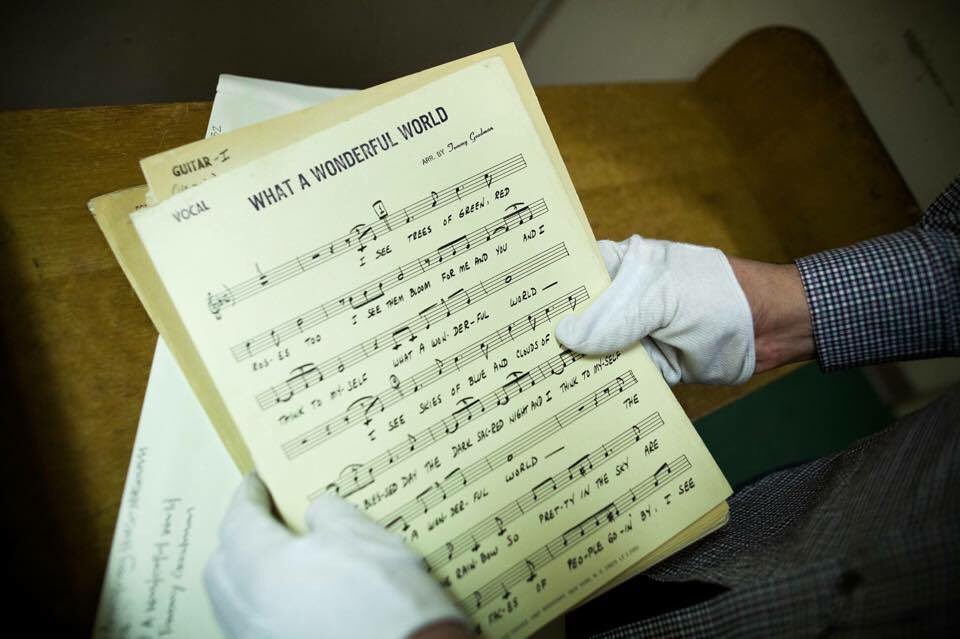 GUITAR - I
VOCAL
WHAT A WONDERFUL WORLD
ARR. BY Tommy Goodman
I SEE TREES OF GREEN, RED
ROS-ES TOO I SEE THEM BLOOM FOR ME AND YOU AND I
THINK TO MY-SELF WHAT A WON-DER-FUL WORLD —
I SEE SKIES OF BLUE AND CLOUDS OF
BLES-SED DAY THE DARK SAC-RED NIGHT AND I THINK TO MY-SELF
A WON-DER-FUL WORLD — THE
RAIN-BOW SO PRET-TY IN THE SKY ARE
FAC-ES OF PEO-PLE GO-IN' BY, I SEE